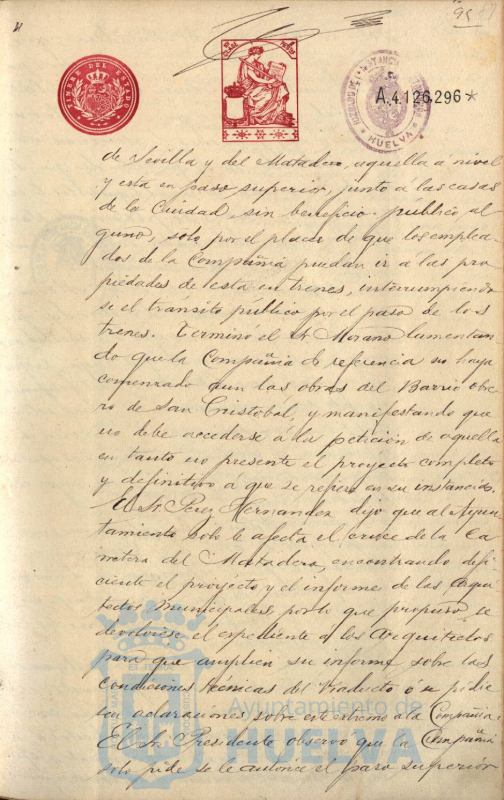 95
TIMBRE DEL ESTADO
A.4.126.296*
HUELVA
de Sevilla y del Matadero, aquella á nivel
y esta en paso superior, junto a las casas
de la Ciudad, sin beneficio público al
guno, solo por el placer de que los emplea
dos de la Compañia puedan ir á las pro
piedades de esta en trenes, interrumpiendo
se el tránsito público por el paso de los
trenes. Terminó el Sr. Morano lamentan
do que la Compañia de referencia no haya
comenzado aun las obras del Barrio obre
ro de San Cristobal, y manifestando que
no debe accederse á la petición de aquella
en tanto no presente el proyecto completo
y definitivo a que se refiere en su instancia.
El Sr. Perez Hernandez dijo que al Ayun
tamiento solo le afecta el cruce de la Ca
rretera del Matadero, encontrando defi
ciente el proyecto y el informe de los Arqui
tectos Municipales por lo que propuso se
devolviese el expediente a los Arquitectos
para que amplien su informe sobre las
condiciones técnicas del Viaducto ó se pidie
ran aclaraciones sobre este extremo a la Compañia.
El Sr. Presidente observó que la Compañia
solo pide se le autorice el paso superior
Ayuntamiento de
HUELVA